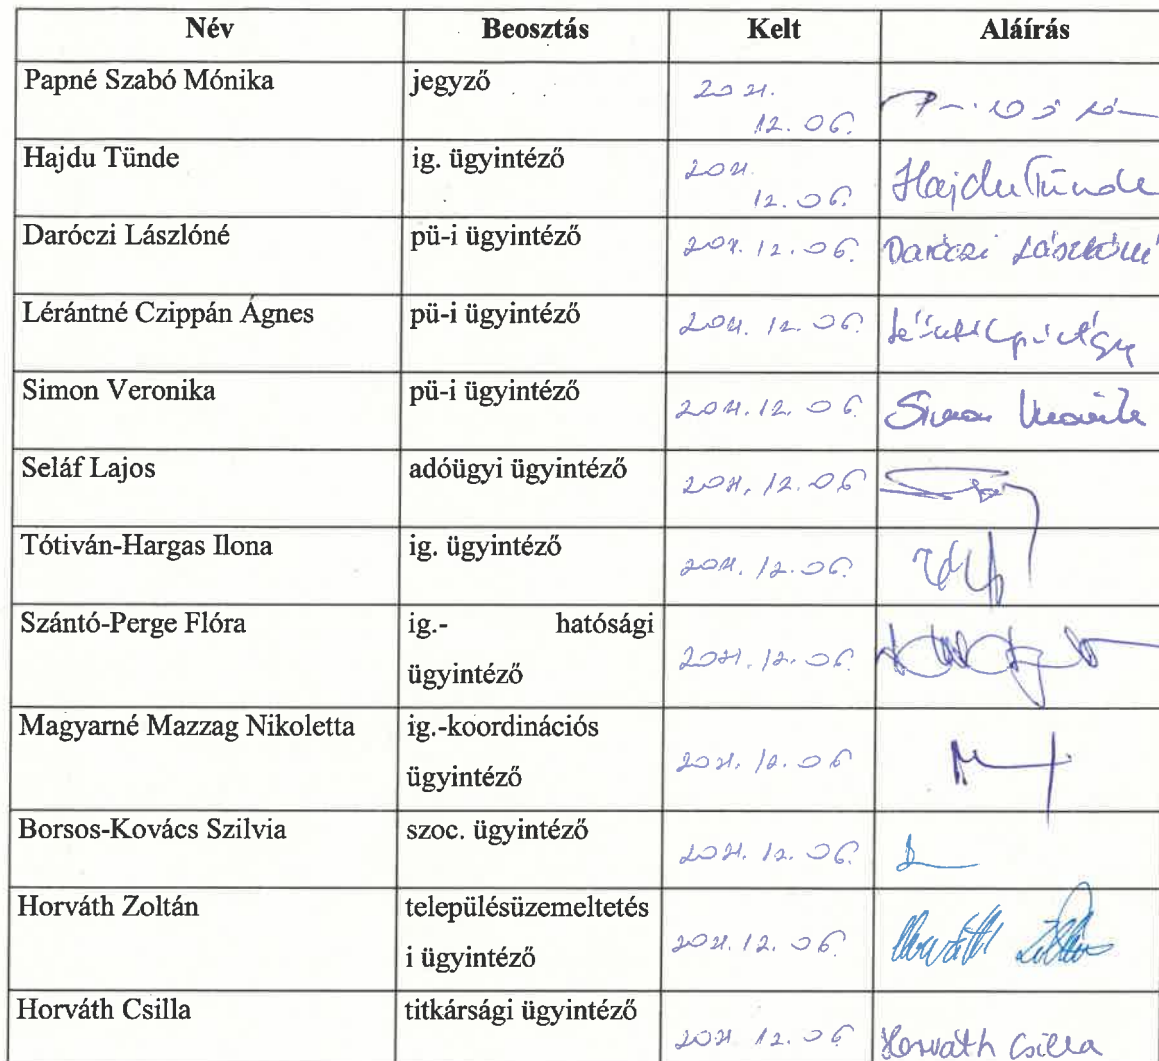 Név Beosztás Kelt Aláírás
Papné Szabó Mónika jegyző 2021.
12.06.
Hajdu Tünde ig. ügyintéző 2021. Hajdu Tünde
12.06.
Daróczi Lászlóné pü-i ügyintéző 2021.12.06. Daróczi Lászlóné
Lérántné Czippán Ágnes pü-i ügyintéző 2021.12.06.
Simon Veronika pü-i ügyintéző 2021.12.06. Simon Veronika
Seláf Lajos adóügyi ügyintéző 2021.12.06
Tótiván-Hargas Ilona ig. ügyintéző 2021.12.06.
Szántó-Perge Flóra ig.- hatósági
ügyintéző 2021.12.06.
Magyarné Mazzag Nikoletta ig.-koordinációs
ügyintéző 2021.12.06
Borsos-Kovács Szilvia szoc. ügyintéző 2021.12.06.
Horváth Zoltán településüzemeltetés
i ügyintéző 2021.12.06. Horváth Zoltán
Horváth Csilla titkársági ügyintéző 2021.12.06 Horváth Csilla